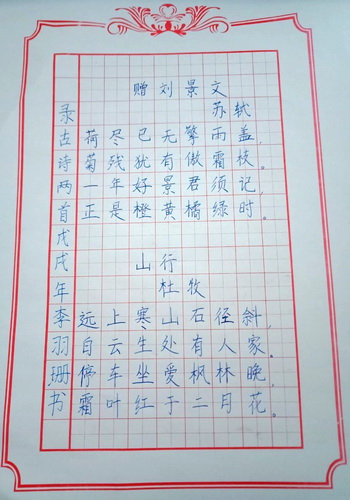 赠刘景文
苏轼
荷尽已无擎雨盖，
菊残犹有傲霜枝。
一年好景君须记，
正是橙黄橘绿时。
山行
杜牧
远上寒山石径斜，
白云生处有人家。
停车坐爱枫林晚，
霜叶红于二月花。
录古诗两首戊戌年李羽珊书